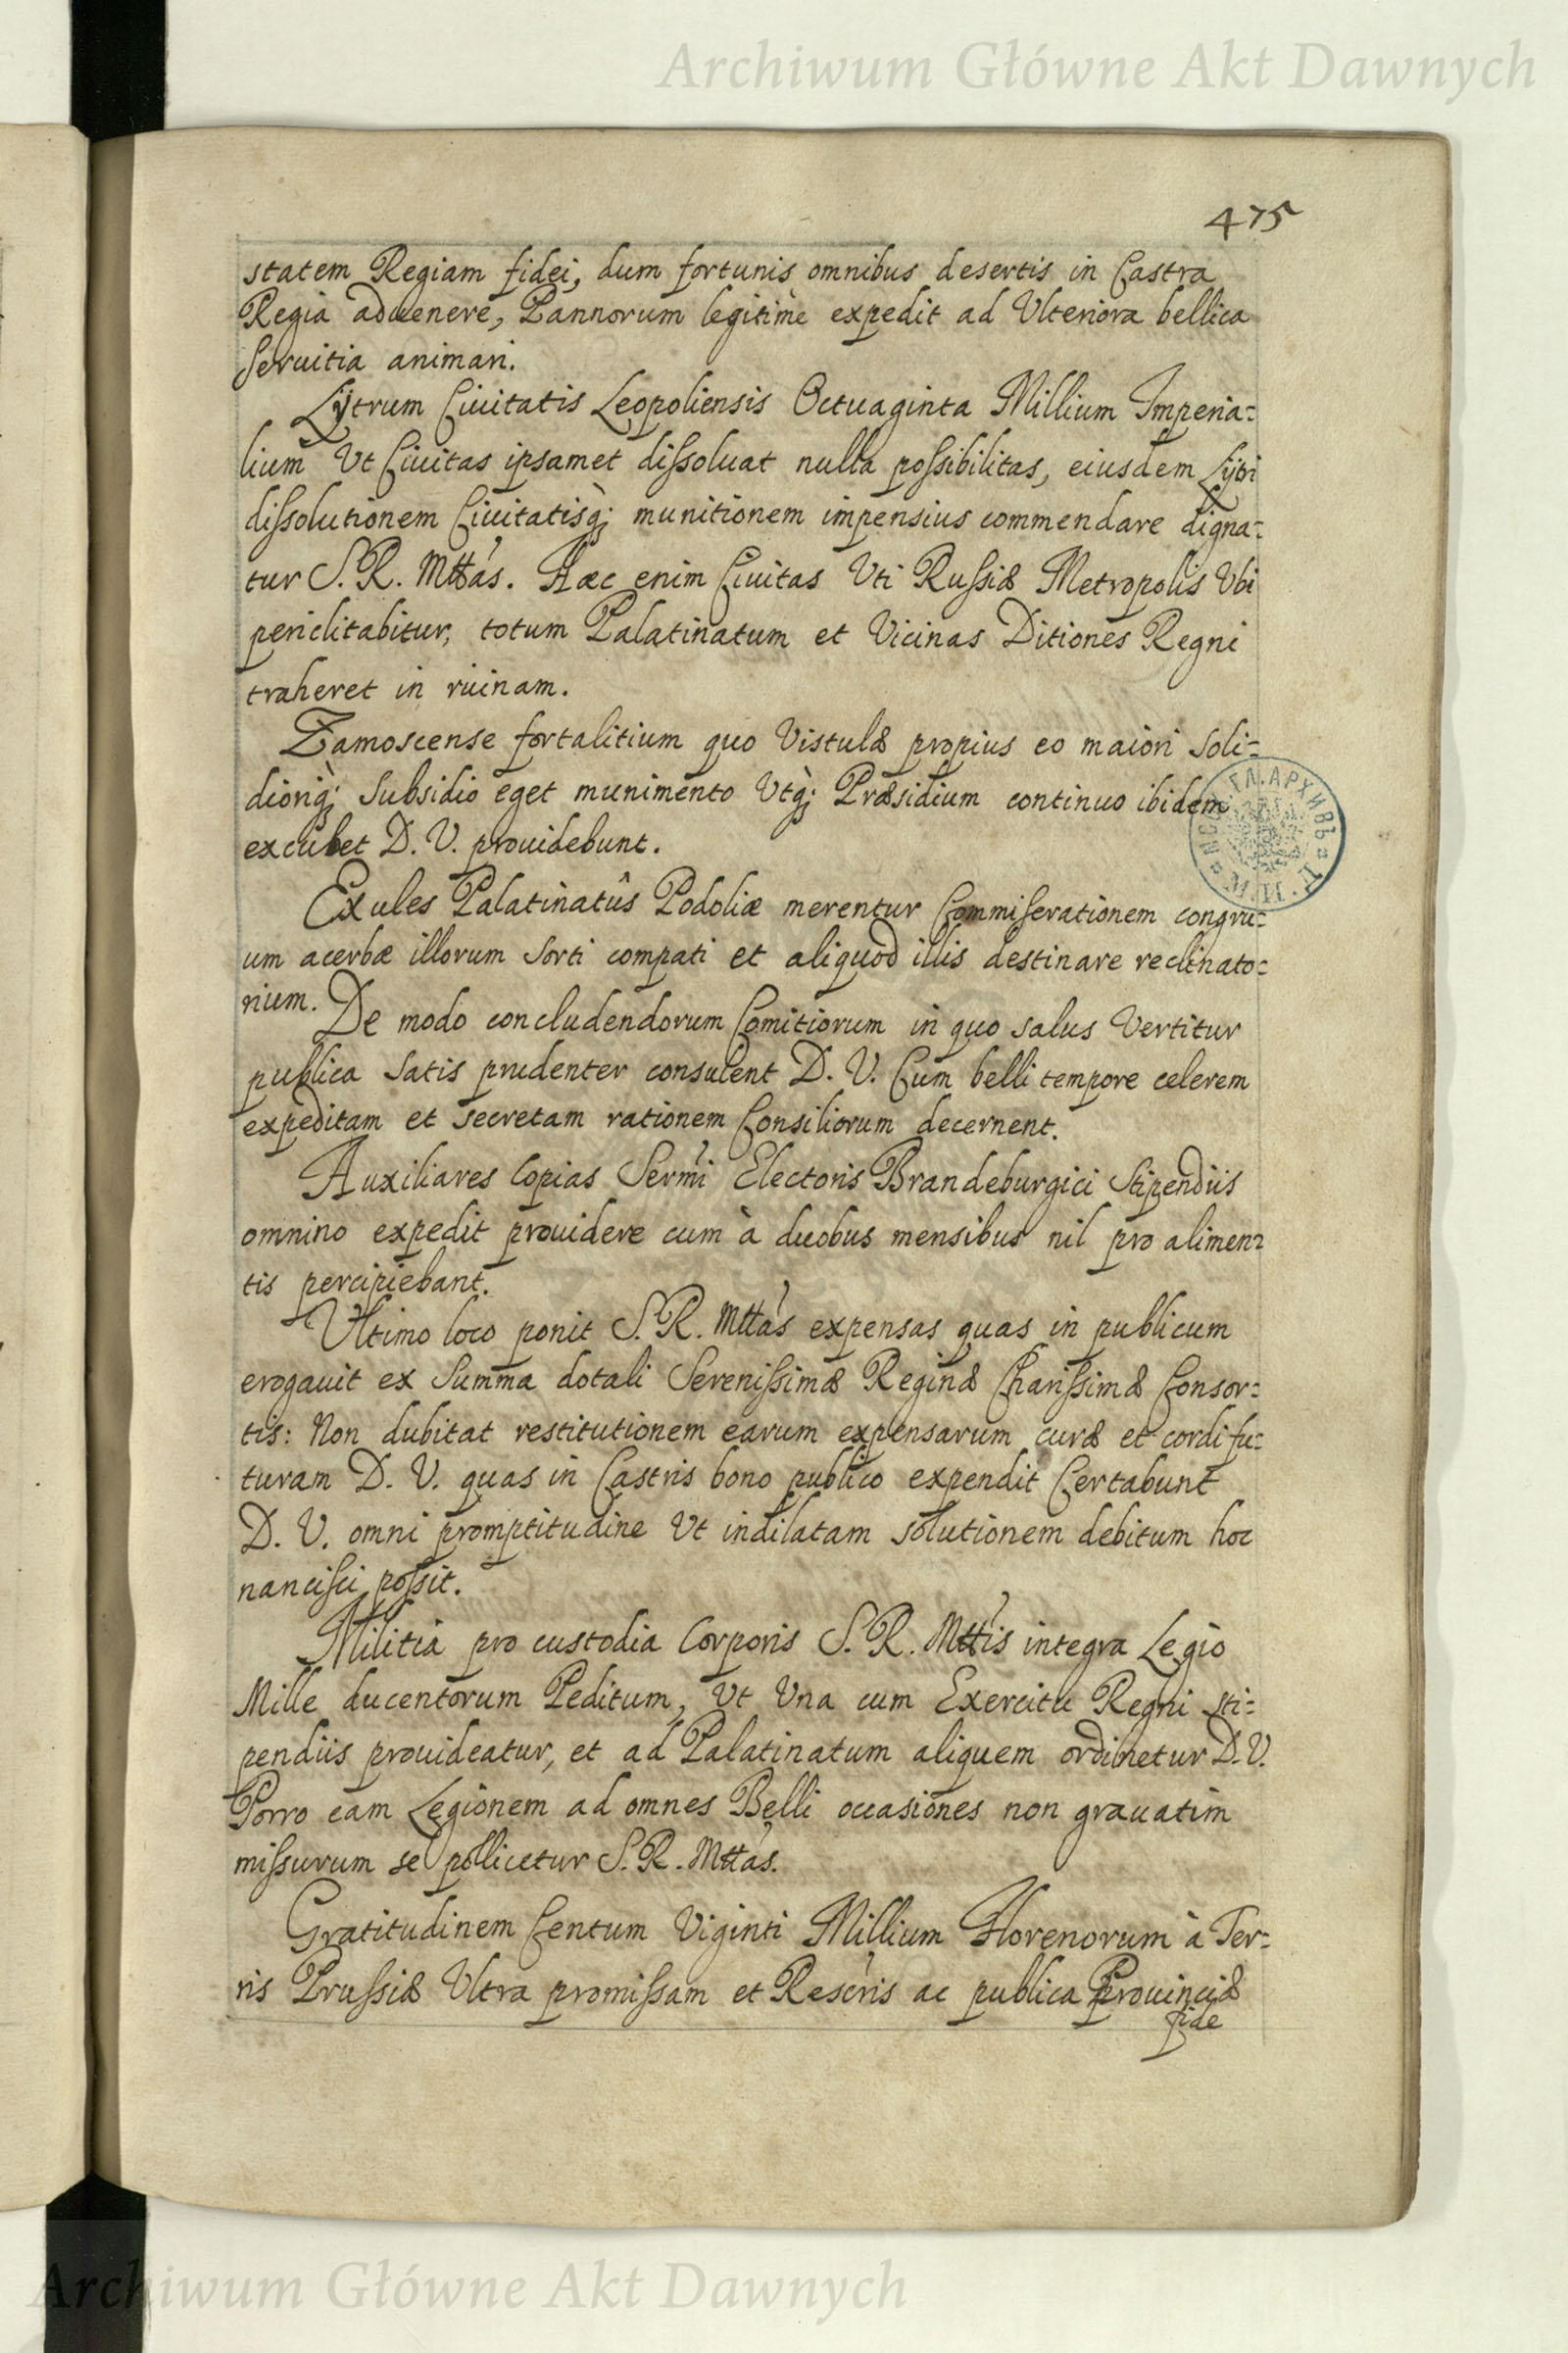 Archiwum Główne Akt Dawnych
475
statem Regiam fidei, dum fortunis omnibus desertis in Castra
Regia aduenere, Pannorum legitimè expedit ad Ulteriora bellica
seruitia animari.
Lytrum Ciuitatis Leopoliensis Octuaginta Millium Imperia=
lium Ut Ciuitas ipsamet dissoluat nulla possibilitas, eiusdem Lytri
dissolutionem Ciuitatisq; munitionem impensius commendare digna=
tur S. R. Mttas. Hæc enim Ciuitas Uti Russiæ Metropolis Ubi
periclitabitur, totum Palatinatum et Vicinas Ditiones Regni
traheret in ruinam.
Zamoscense fortalitium quo Vistulæ propius eo maiori soli=
dioriq; subsidio eget munimento Utq; Præsidium continuo ibidem
excubet D. V. prouidebunt.
Exules Palatinatûs Podoliæ merentur Commiserationem congru=
um acerbæ illorum sorti compati et aliquod illis destinare reclinato=
rium.
De modo concludendorum Comitiorum in quo salus Vertitur
publica satis prudenter consulent D. V. Cum belli tempore celerem
expeditam et secretam rationem Consiliorum decernent.
Auxiliares Copias Sermi Electoris Brandeburgici Stipendiis
omnino expedit prouidere cum à duobus mensibus nil pro alimen=
tis percipiebant.
Ultimo loco ponit S. R. Mttas expensas quas in publicum
erogauit ex Summa dotali Serenissimæ Reginæ Charissimæ Consor=
tis: Non dubitat restitutionem earum expensarum curæ et cordi fu=
turam D. V. quas in Castris bono publico expendit Certabunt
D. V. omni promptitudine Ut indilatam solutionem debitum hoc
nancisci possit.
Militia pro custodia Corporis S. R. Mttis integra Legio
Mille ducentorum Peditum, Ut Una cum Exercitu Regni sti=
pendiis prouideatur, et ad Palatinatum aliquem ordinetur D. V.
Porro eam Legionem ad omnes Belli occasiones non grauatim
missurum se pollicetur S. R. Mttas.
Gratitudinem Centum Viginti Millium Florenorum à Ter=
ris Prussiæ Ultra promissam et Rescris ac publica Prouinciæ
fide
Archiwum Główne Akt Dawnych